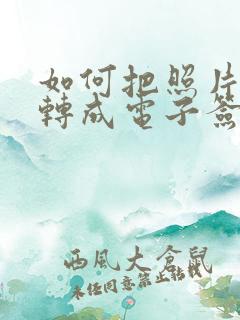 如何把照片
轉成電子簽
西風大倉鼠
未任同意禁止轉載